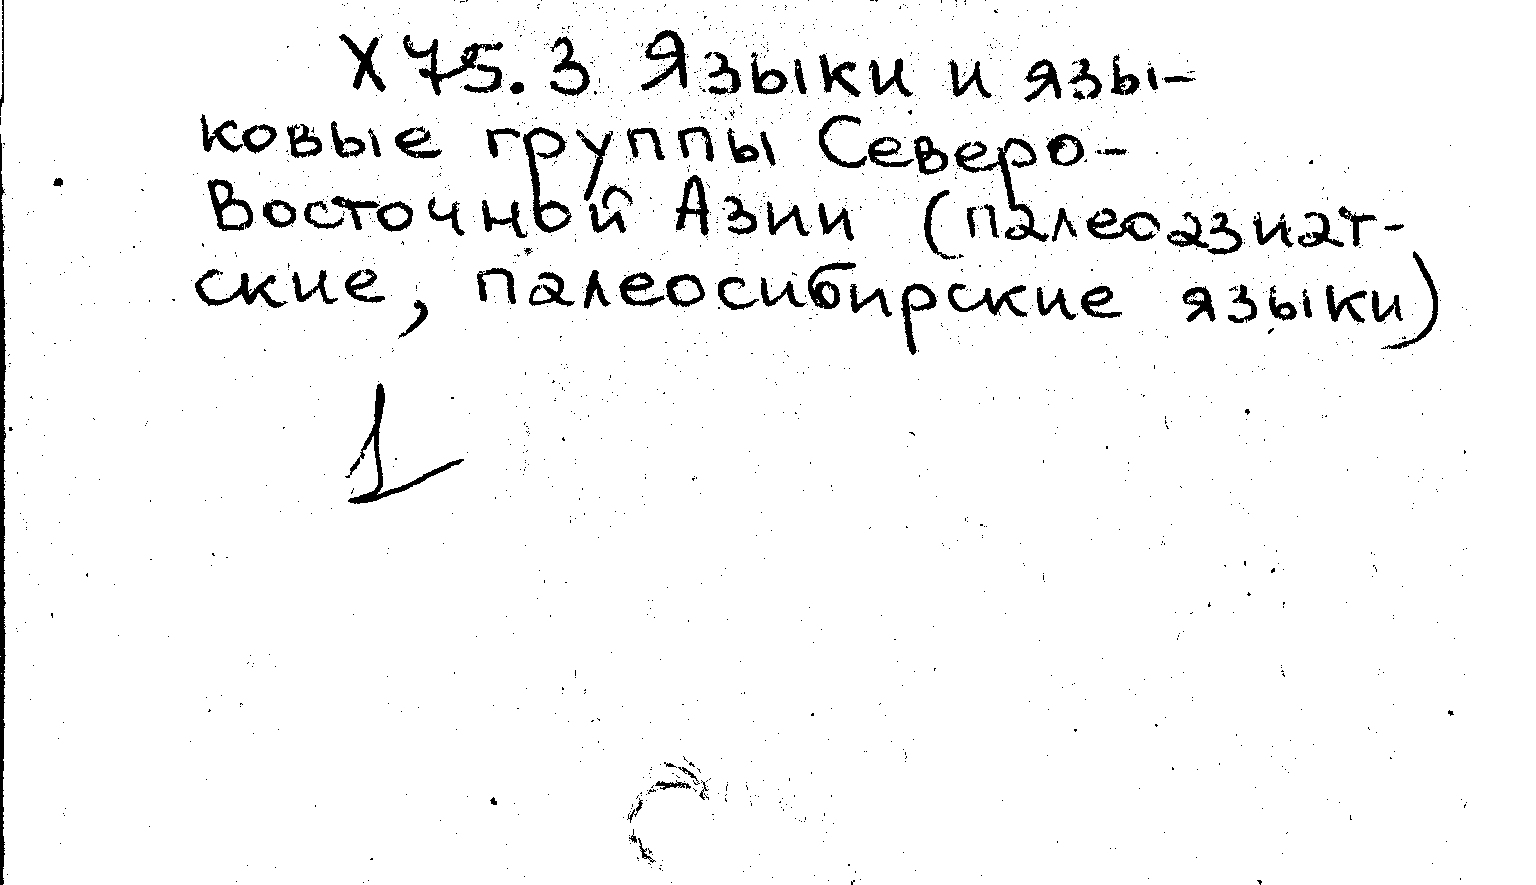 Х 45.3 Языки и язы-
ковые группы Северо-
Восточной Азии (палеоазиат-
ские, палеосибирские языки)
1